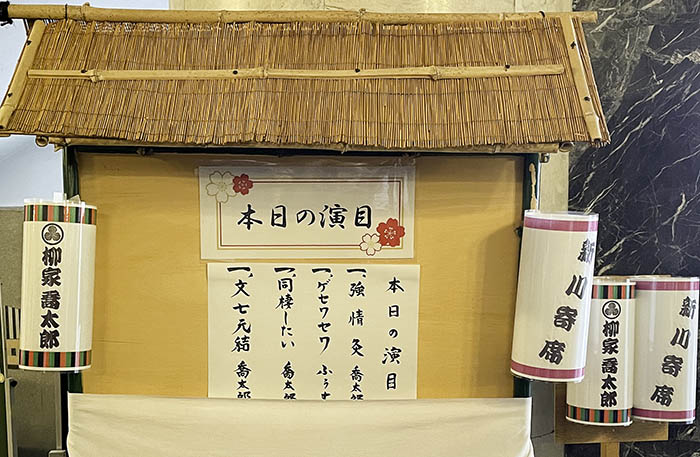 本日の演目
本日の演目
一、強情灸 喬太郎
一、ゲセワセワ ふう
一、同棲したい 喬太郎
一、文七元結 喬太郎
柳家喬太郎
新川寄席
柳家喬太郎
新川寄席